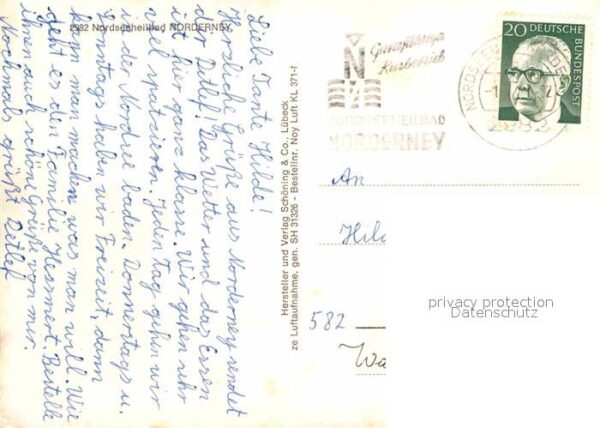 2982 Nordseeheilbad NORDERNEY
Liebe Tante Hilde!
Herzliche Grüße aus Norderney sendet
der Ditlef! Das Wetter und das Essen
ist hier ganz klasse. Wir gehen sehr
viel spatzieren. Jeden Tag gehen wir
in der Nordsee baden. Donnerstags u.
Sonntags haben wir Freizeit, dann
kann man machen was man will. Wie
geht es den Familie Hessmert. Bestelle
ihnen auch schöne Grüße von mir.
Nochmals grüßt Detlef
Hersteller und Verlag Schöning & Co., Lübeck
ze Luftaufnahme, gen. SH 31326 - Bestellnr. Noy Luft KL 371-f
Ganzjährig
Kurbetrieb
N
NORDSEEHEILBAD
NORDERNEY
2982
20 DEUTSCHE
BUNDESPOST
An
Hil
privacy protection
Datenschutz
582
Wa